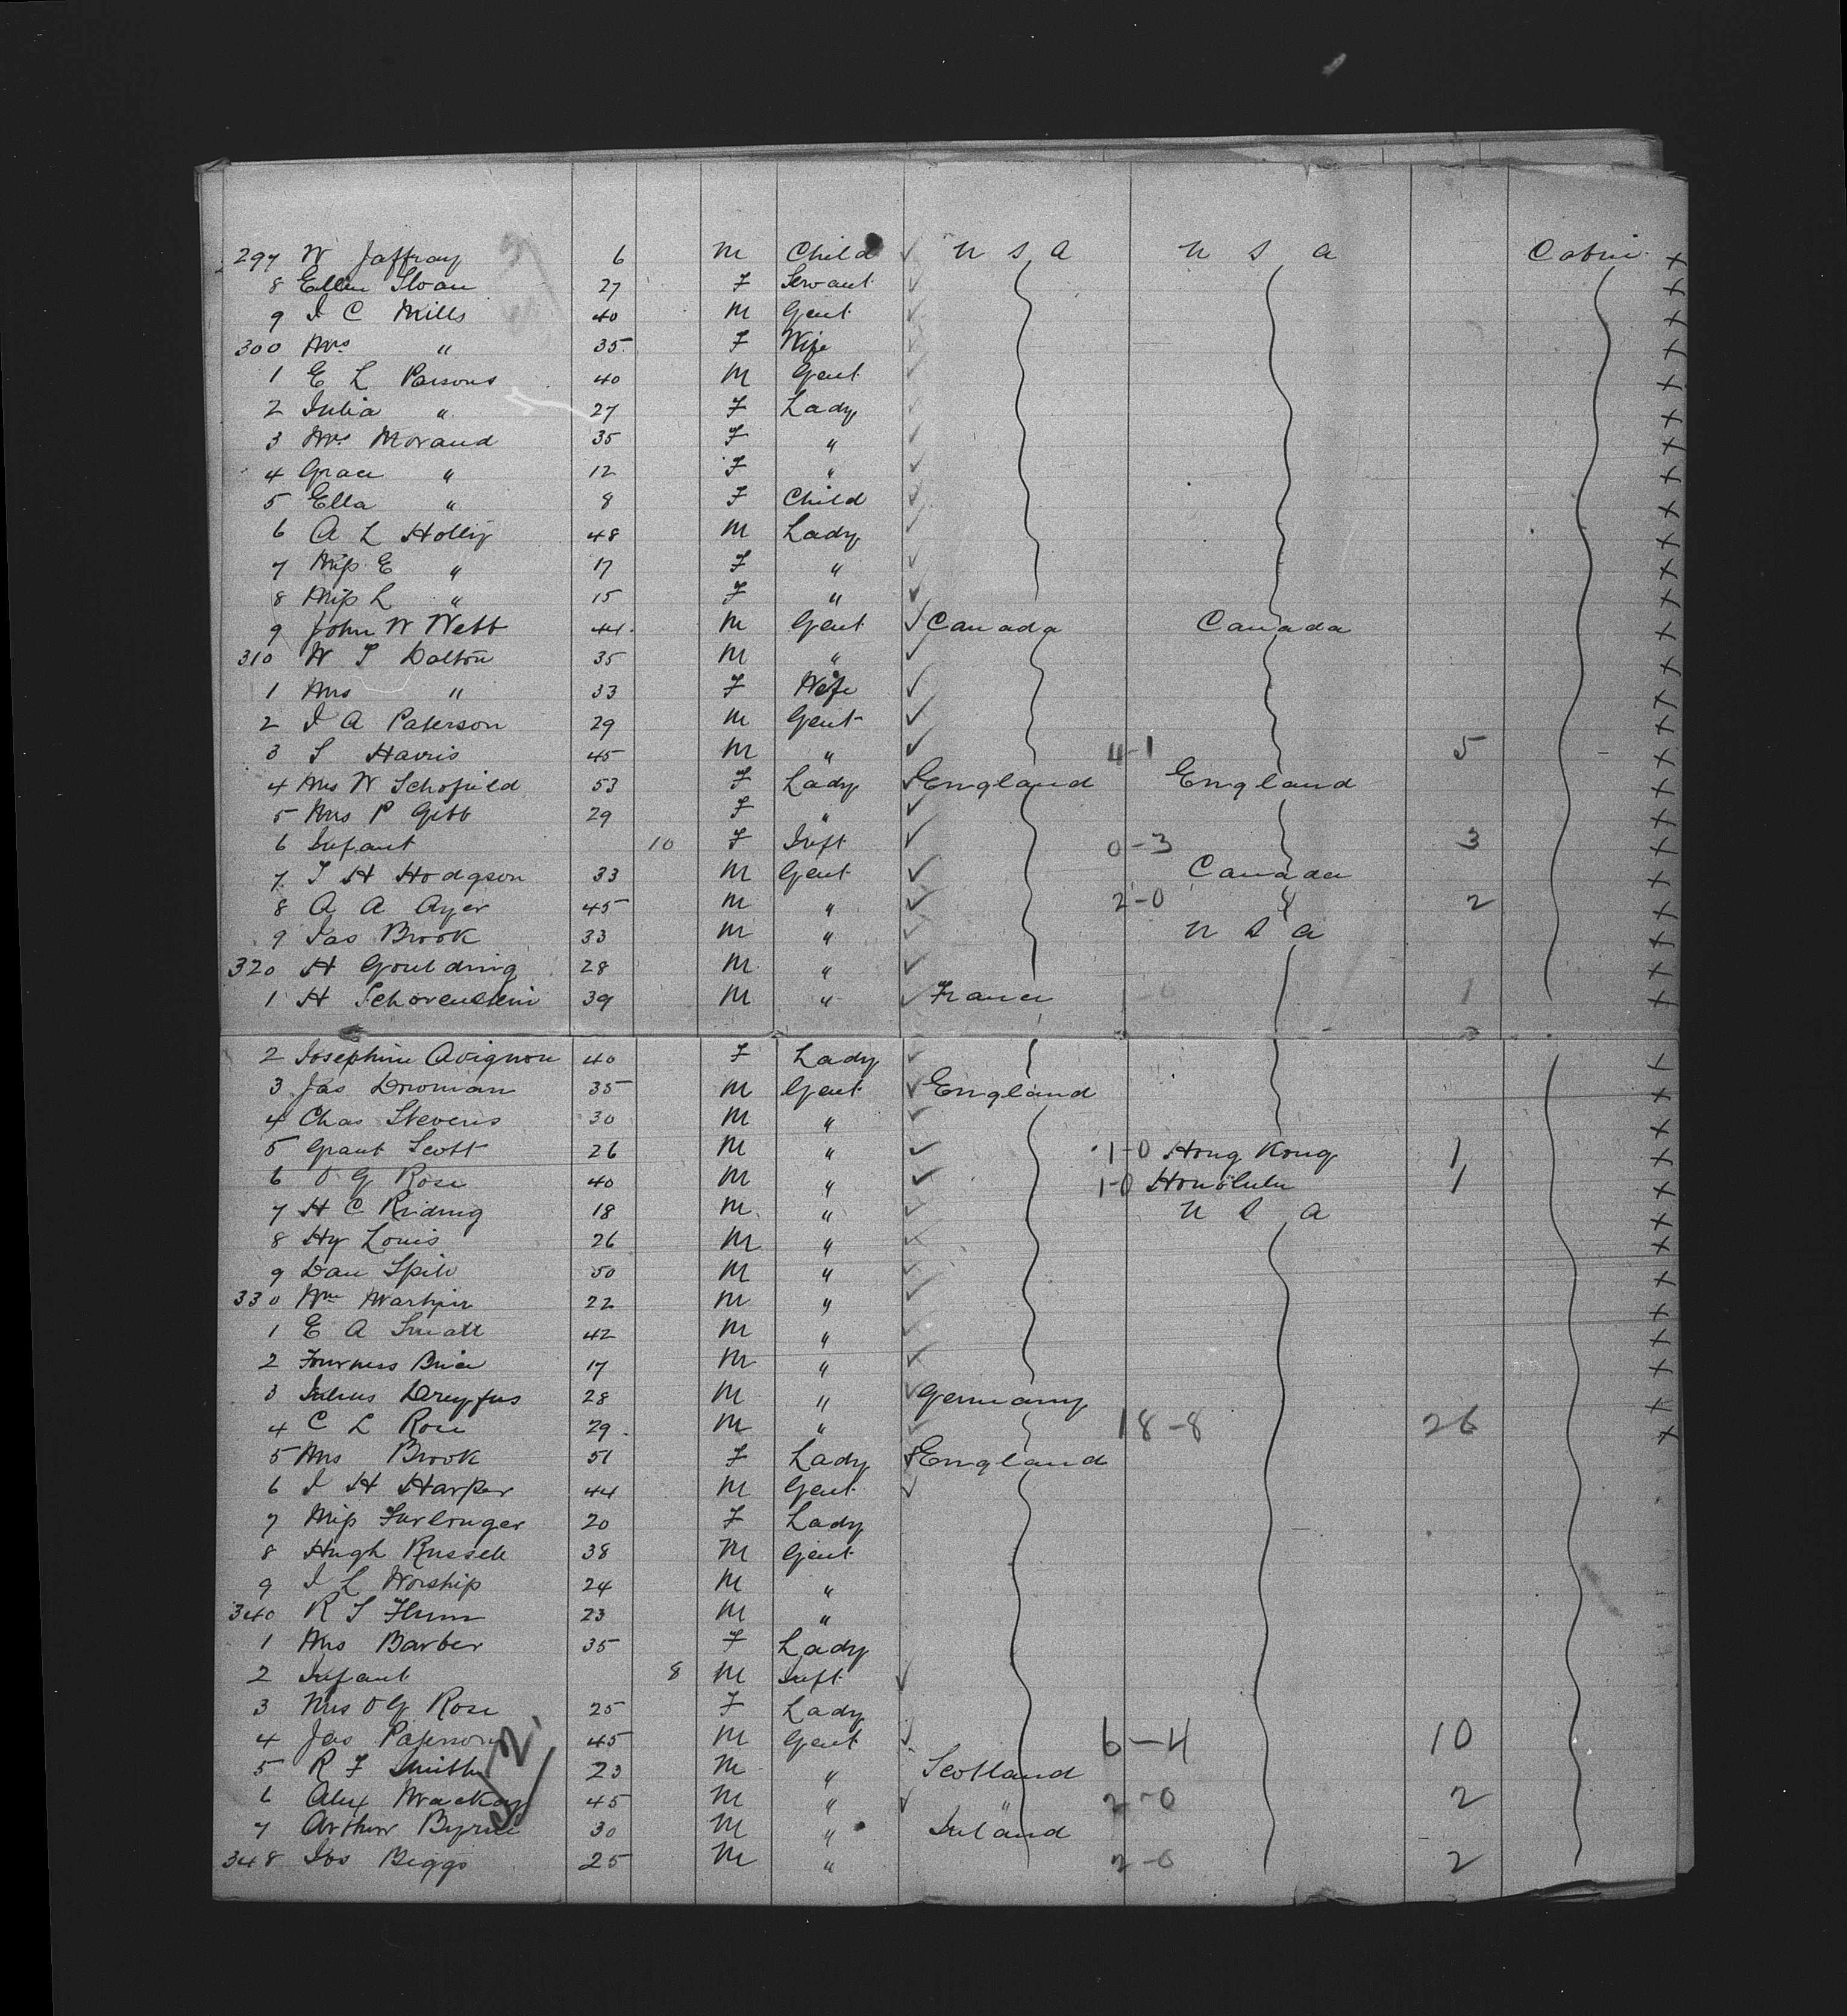 297 W Jaffray 6 M Child U S A U S A Cabin
8 Ellen Sloan 27 F Servant
9 J C Mills 40 M Gent
300 Mrs " 35 F Wife
1 E L Parsons 40 M Gent
2 Julia " 27 F Lady
3 Mrs Morand 35 F "
4 Grace " 12 F "
5 Ella " 8 F Child
6 A L Holly 48 M Lady
7 Miss E " 17 F "
8 Miss L " 15 F "
9 John W Webb 44 M Gent Canada Canada
310 W T Dalton 35 M "
1 Mrs " 33 F Wife
2 J A Paterson 29 M Gent
3 S Harris 45 M " 4-1 5
4 Mrs W Schofield 53 F Lady England England
5 Mrs P Gibb 29 F "
6 Infant 10 F Inft 0-3 3
7 T H Hodgson 33 M Gent Canada
8 A A Ayer 45 M " 2-0 " 2
9 Jas Brook 33 M " U S A
320 H Goulding 28 M "
1 H 39 M " France 1-0 1
2 Josephine Avignon 40 F Lady
3 Jas Dowman 35 M Gent England
4 Chas Stevens 30 M "
5 Grant Scott 26 M " 1-0 Hong Kong 1
6 O G Rose 40 M " 1-0 Honolulu 1
7 H C Riding 18 M " U S A
8 Hy Louis 26 M "
9 Dan 50 M "
330 Wm 22 M "
1 E A Small 42 M "
2 Fourness Brice 17 M "
3 Julius Dreyfus 28 M " Germany
4 C L Rose 29 M " 18-8 26
5 Mrs Brook 51 F Lady England
6 J H Harper 44 M Gent
7 Miss Furlonger 20 F Lady
8 Hugh Russell 38 M Gent
9 J L Worship 24 M "
340 R S 23 M "
1 Mrs Barber 35 F Lady
2 Infant 8 M Inft
3 Mrs O G Rose 25 F Lady
4 Jas Paterson 45 M Gent 6-4 10
5 R F Smith 23 M " Scotland
6 Alex Mackay 45 M " " 2-0 2
7 Arthur Byrne 30 M " Ireland
348 Jos Biggs 25 M " 2-0 2